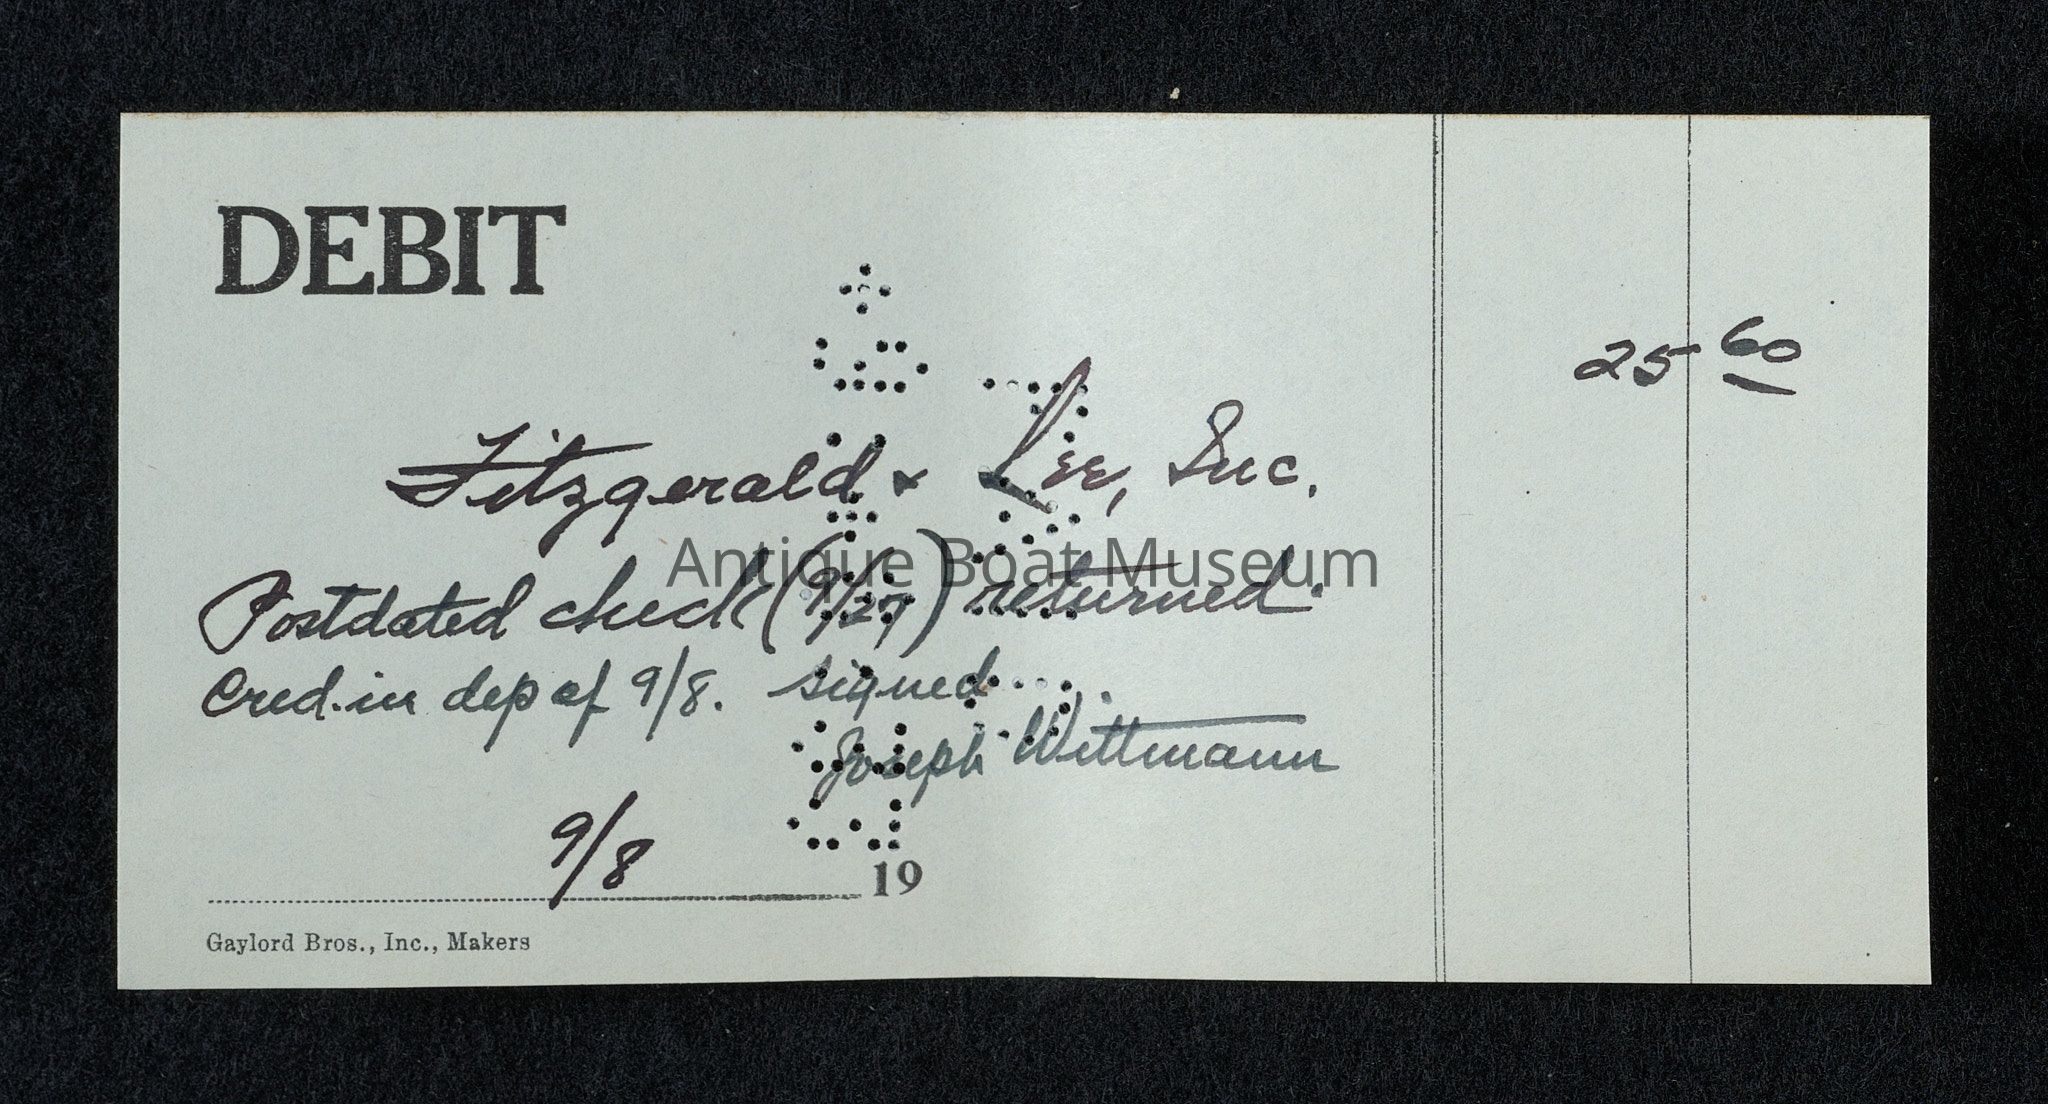 DEBIT
25 60
Fitzgerald & Lee, Inc.
Antique Boat Museum
Postdated check (9/27) returned.
Cred. in dep of 9/8. signed
Joseph Wittmann
9/8 19
Gaylord Bros., Inc., Makers